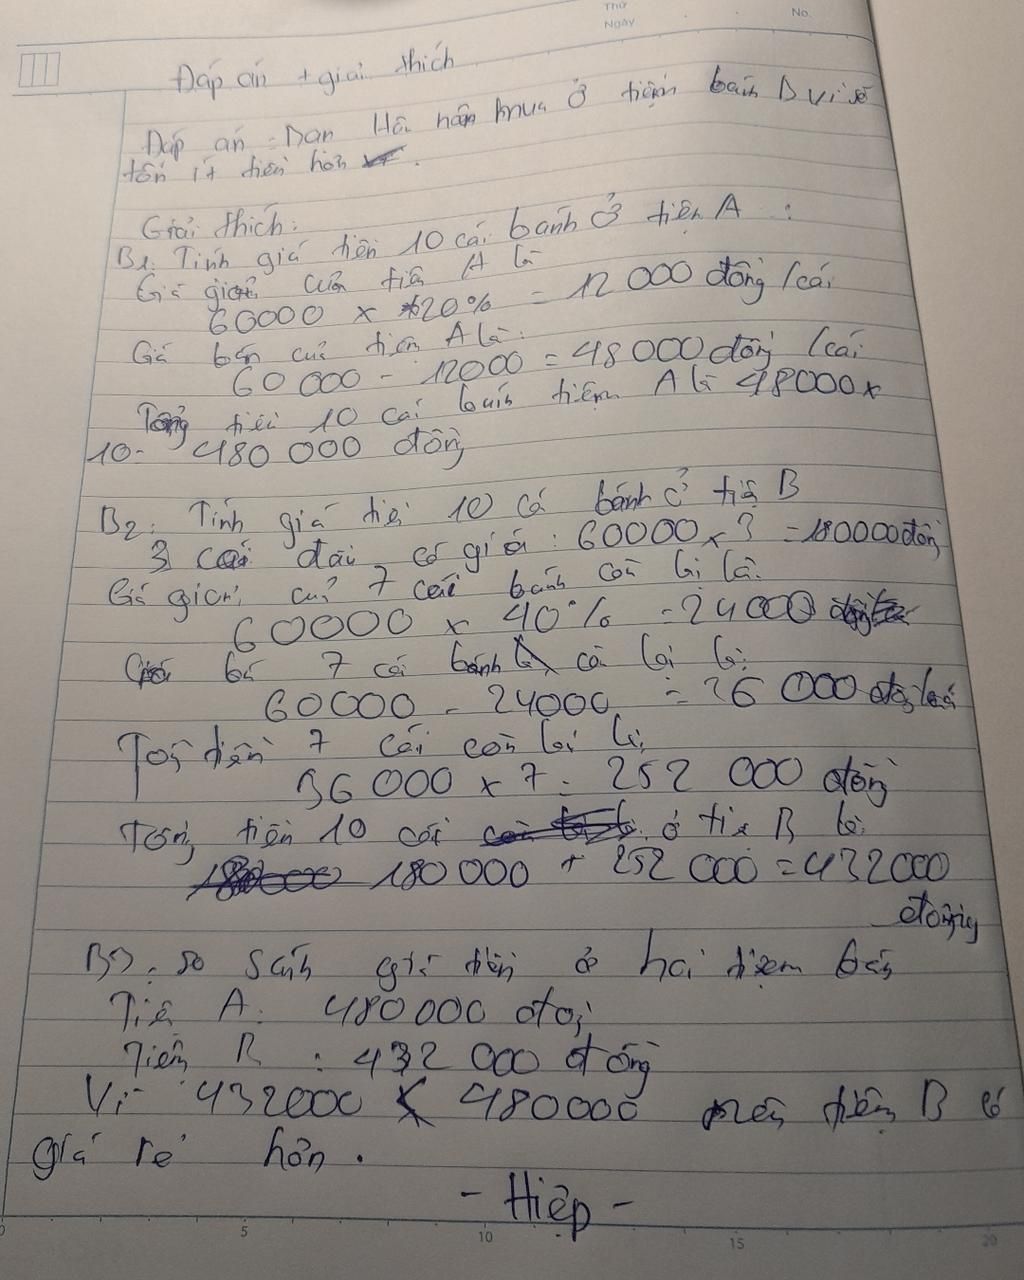 Thứ
Ngày
No.
Đáp án + giải thích
Đáp án: Bạn Hoa nên mua ở tiệm bánh B vì sẽ
tốn ít tiền hơn.
Giải thích:
B1: Tính giá tiền 10 cái bánh ở tiệm A:
Giá giảm của tiệm A là
60000 x 20% = 12 000 đồng/cái
Giá bán của tiệm A là:
60 000 - 12000 = 48 000 đồng/cái
Tổng tiền 10 cái bánh tiệm A là 48000 x
10 = 480 000 đồng
B2: Tính giá tiền 10 cái bánh ở tiệm B
3 cái đầu có giá: 60000 x 3 = 180000 đồng
Giá giảm của 7 cái bánh còn lại là:
60000 x 40% = 24000
Giá bán 7 cái bánh còn lại là:
60000 - 24000 = 36 000 đồng/cái
Tổng tiền 7 cái còn lại là:
36 000 x 7 = 252 000 đồng
Tổng tiền 10 cái ở tiệm B là
180 000 + 252 000 = 432000
đồng
B3: so sánh giá tiền ở hai tiệm bánh
Tiệm A: 480000 đồng
Tiệm B: 432 000 đồng
Vì 432000 < 480000 nên tiệm B có
giá rẻ hơn.
- Hiệp -
0 5 10 15 20